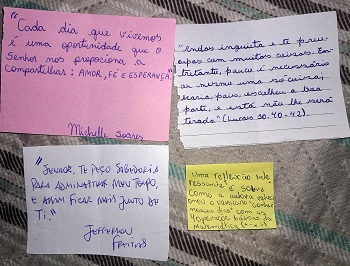 "Cada dia que vivemos
é uma oportunidade que o
Senhor nos proporciona a
compartilhar: AMOR, FÉ E ESPERANÇA"
Michelle Soares
"Andas inquieta e te preo-
cupas com muitas coisas. En-
tretanto, pouco é necessário
ou mesmo uma só coisa;
Maria, pois, escolheu a boa
parte, e esta não lhe será
tirada" (Lucas 10.40-42).
"SENHOR, TE PEÇO SABEDORIA
PARA ADMINISTRAR MEU TEMPO,
E ASSIM FICAR MAIS JUNTO DE
TI."
Jefferson
FREITAS
uma reflexão inte
ressante é sobre
como a autora
o versículo "contar
nossos dias" com as
4 operações básicas da
matemática (+ - x ÷)